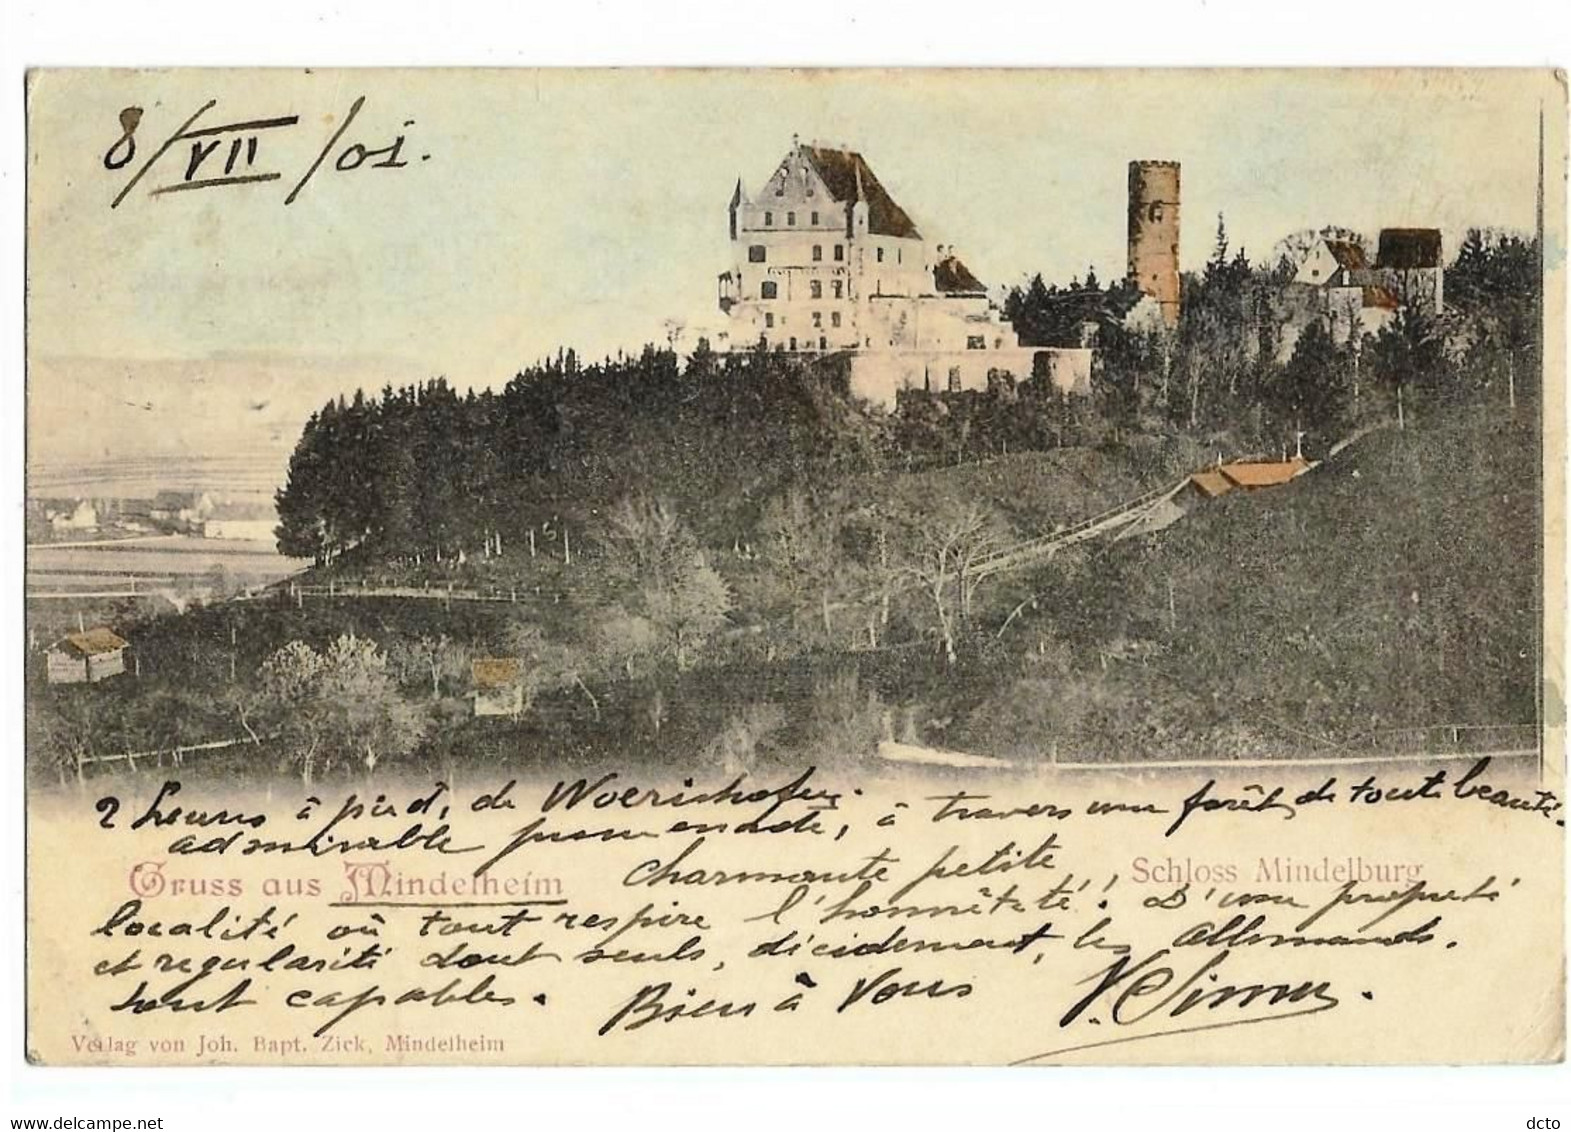 8/VII/01.
2 heures à pied, de Woerishofen.
admirable promenade, à travers une forêt de toute beauté.
Gruss aus Mindelheim
Schloss Mindelburg
Charmante petite
localité où tout respire l'honnêteté! D'une propreté
et regularité dont seuls, décidement, les Allemands.
sont capables. Bien à Vous
Verlag von Joh. Bapt. Zick, Mindelheim
delcampe.net
dcto